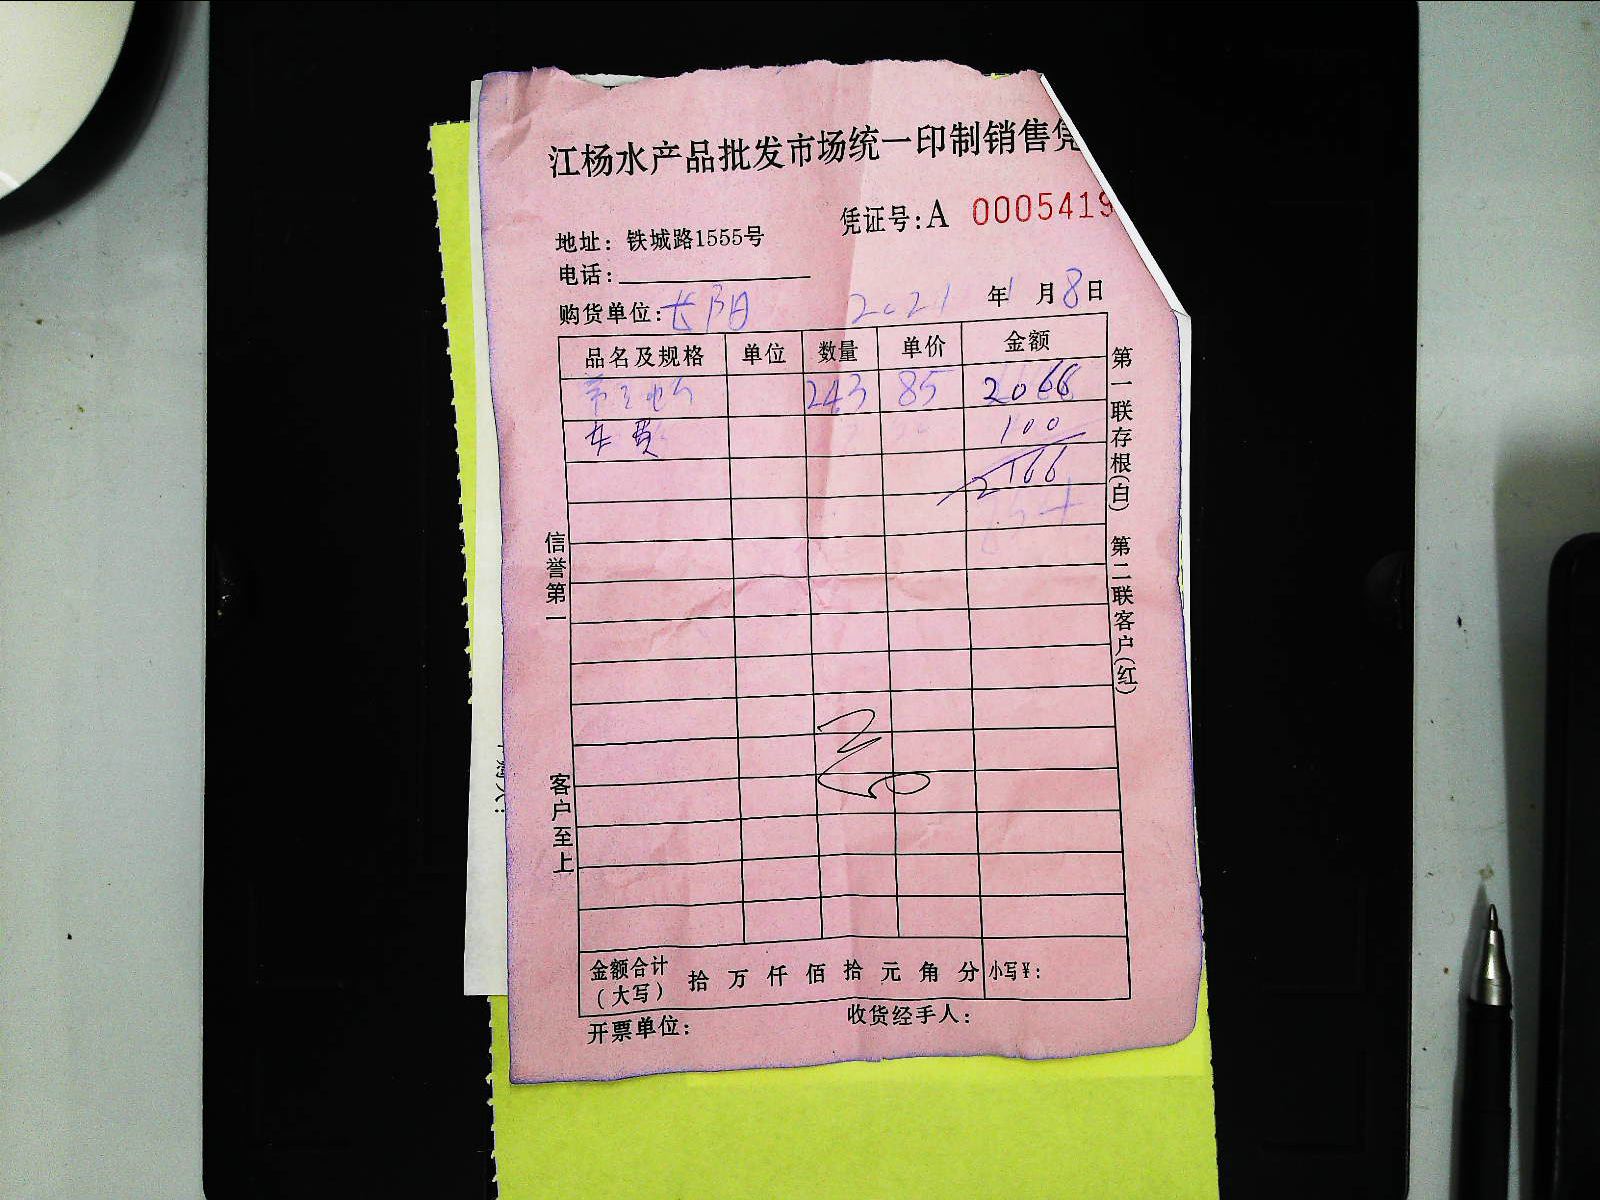 江杨水产品批发市场统一印制销售凭
凭证号:A 0005419
地址: 铁城路1555号
电话:
购货单位: 长阳 2021 年 1 月 8 日
品名及规格 单位 数量 单价 金额
243 85 2066
车费 100
2166
第一联存根(白) 第二联客户(红)
信誉第一
客户至上
金额合计(大写) 拾 万 仟 佰 拾 元 角 分 小写¥:
开票单位: 收货经手人: